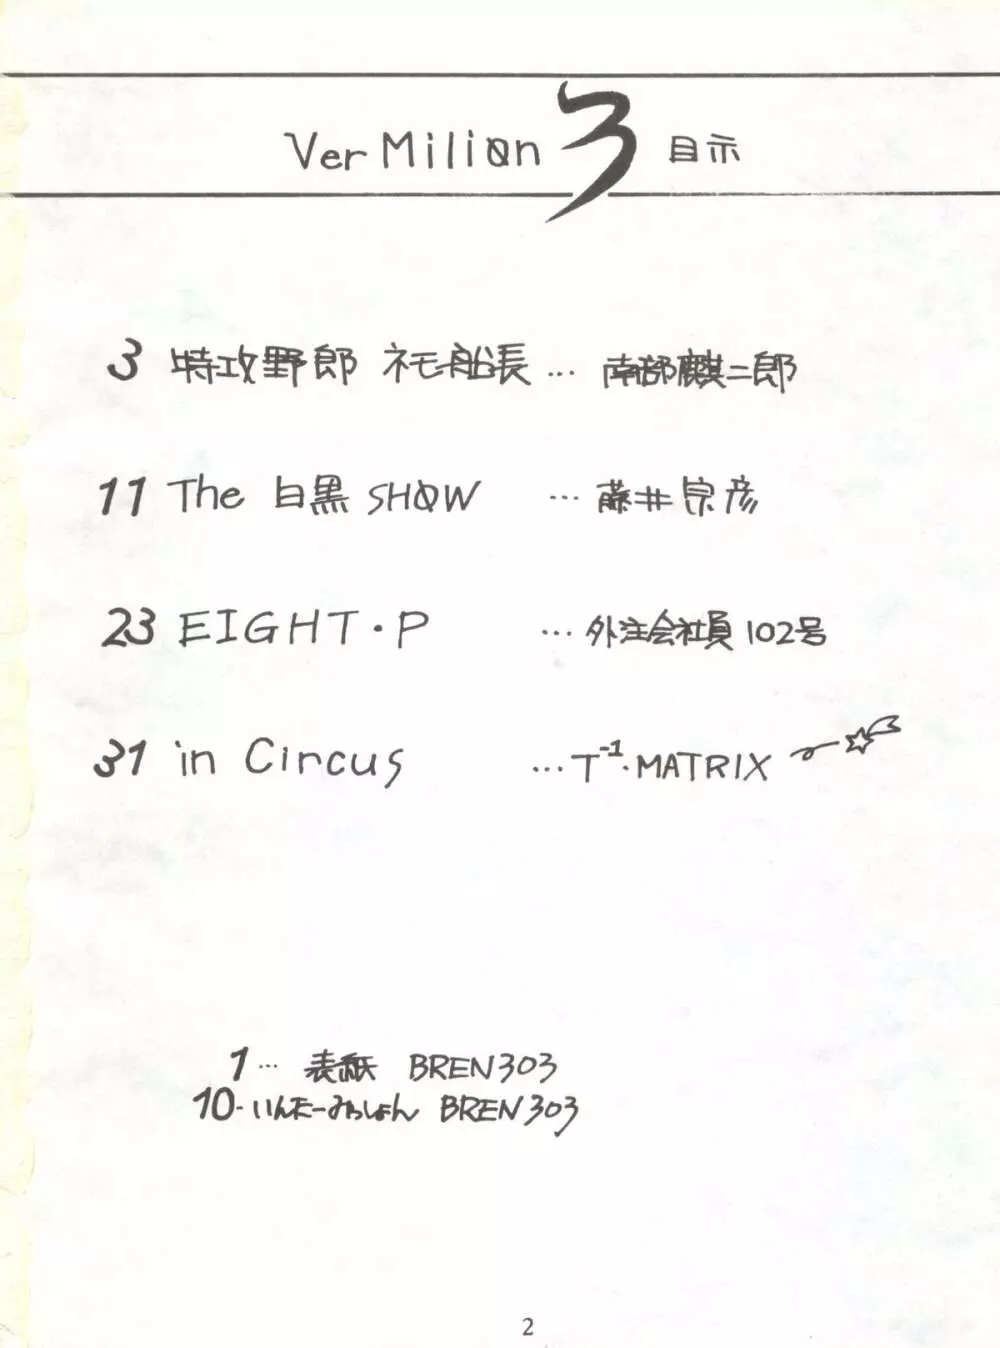 Ver Milion 3 目示
3 特攻野郎 ネモ船長 … 南部麒二郎
11 The 白黒 SHOW … 藤井宗彦
23 EIGHT・P … 外注会社員102号
31 in Circus … T⁻¹・MATRIX
1 … 表紙 BREN303
10 - いんたーみっしょん BREN303
2